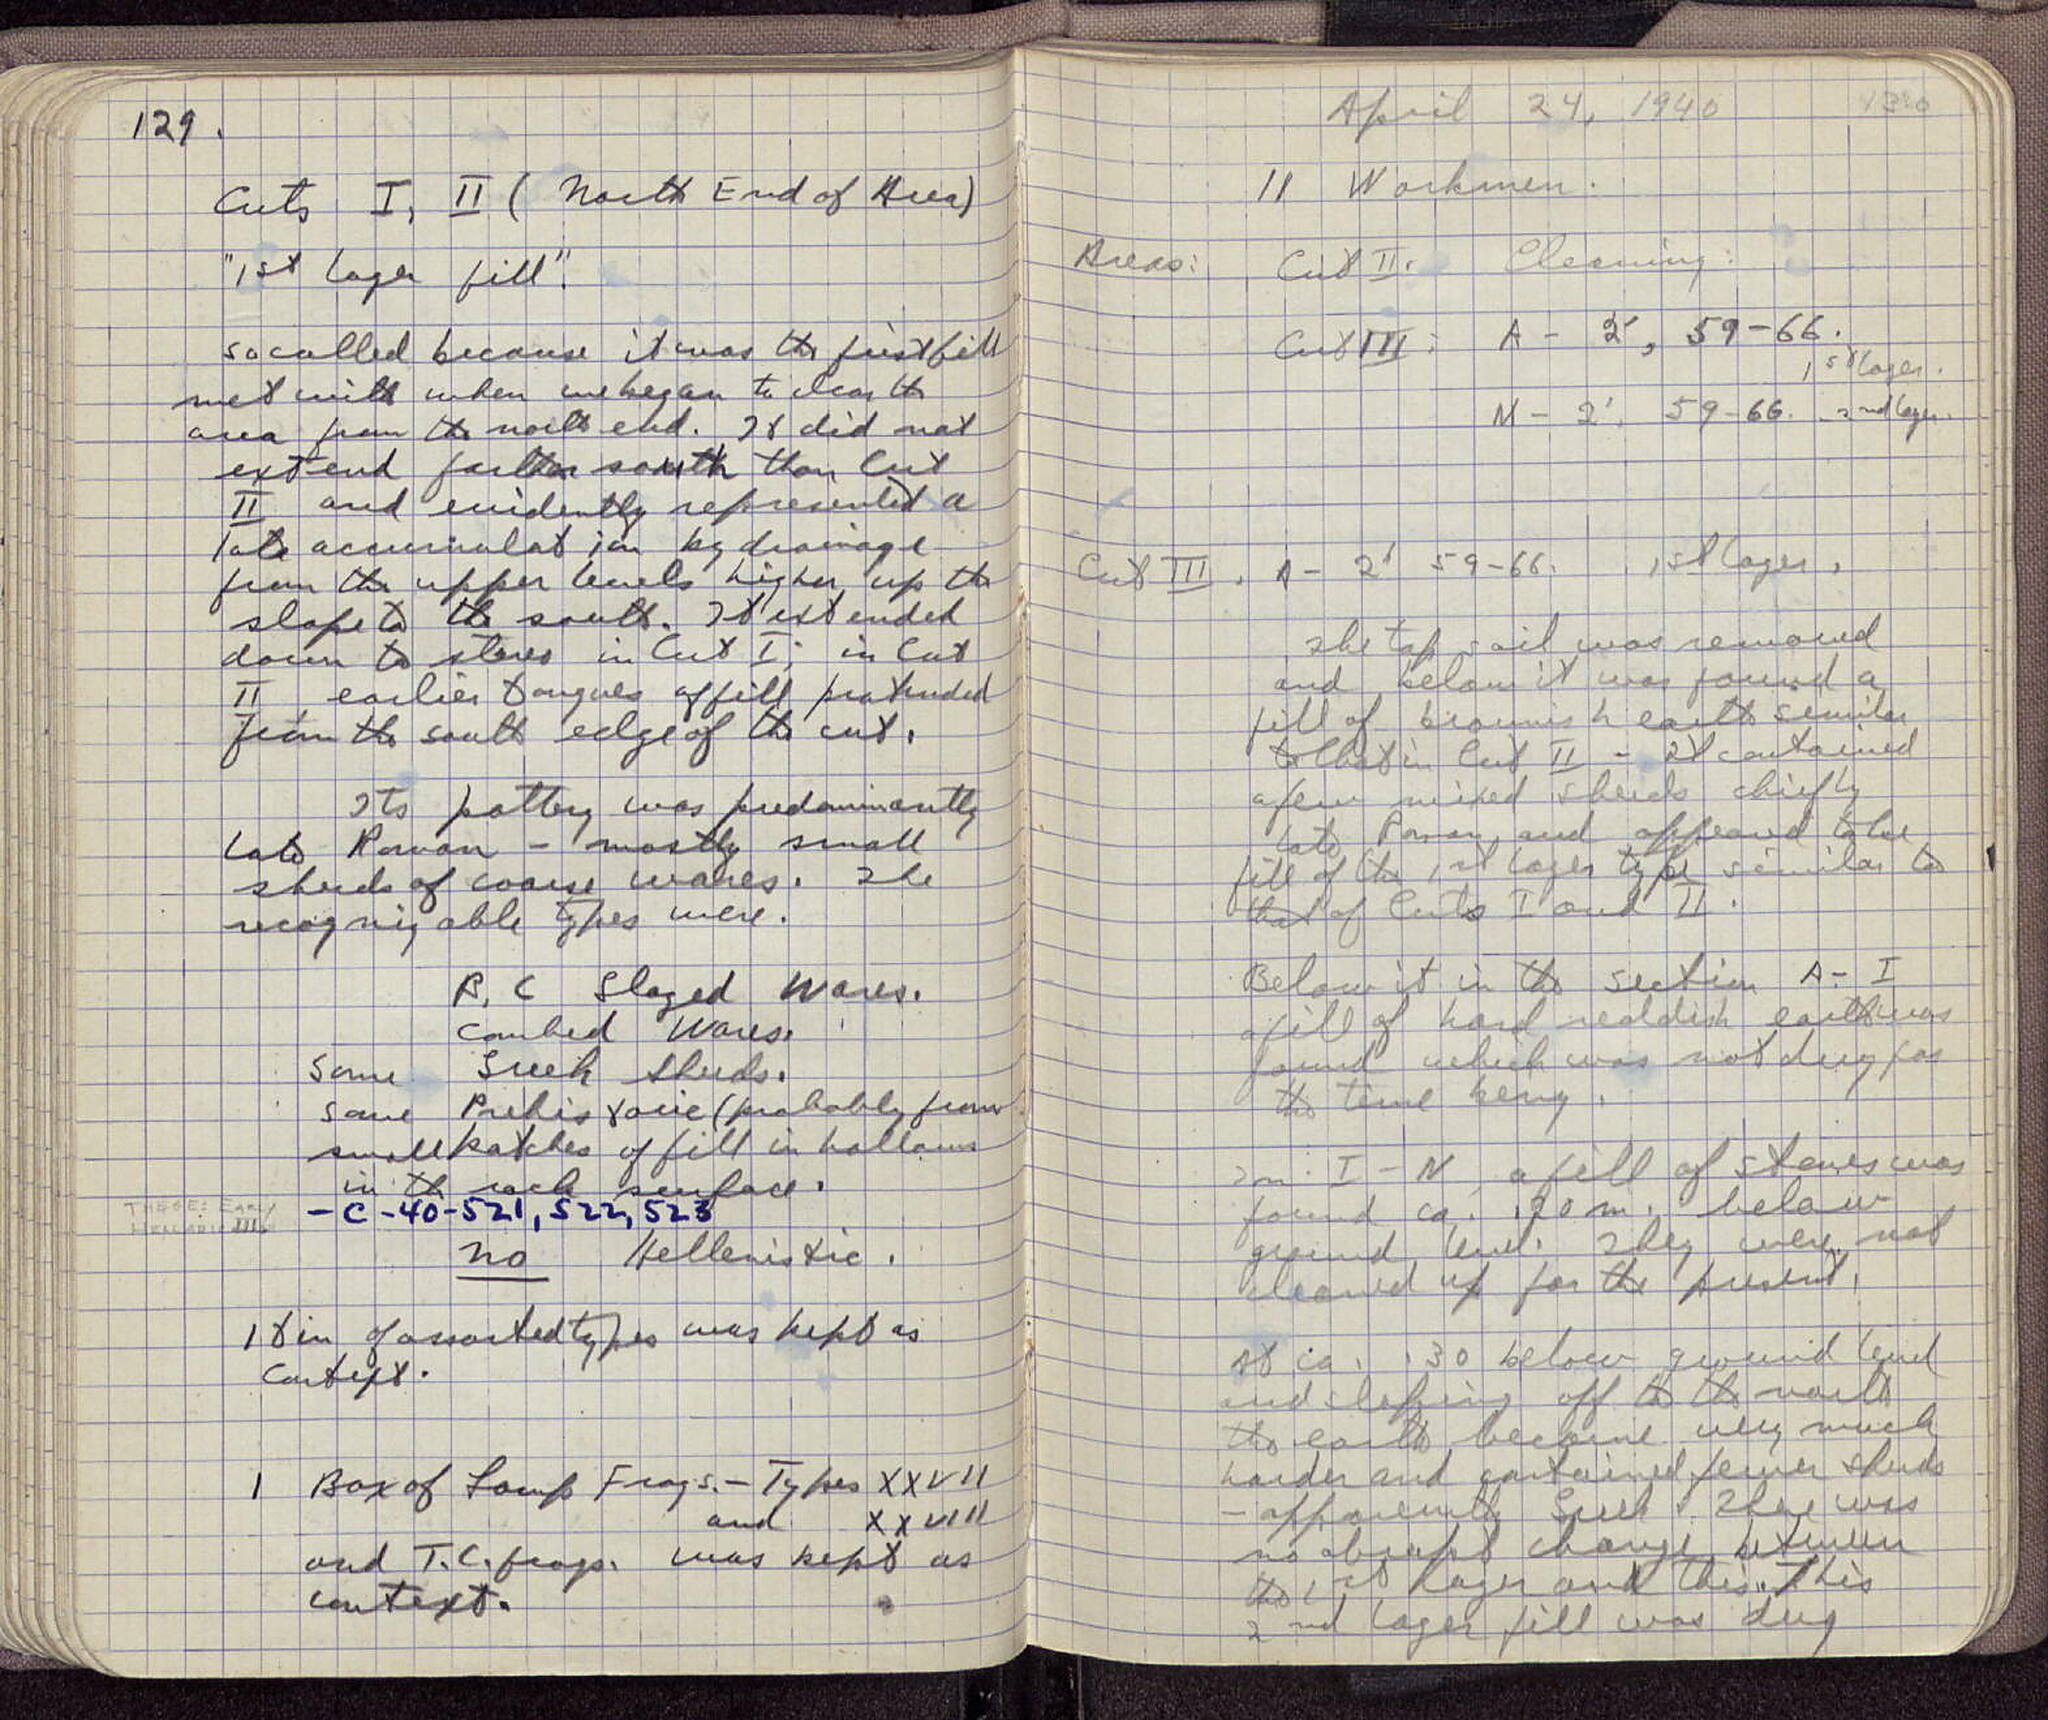 129.
Cuts I, II (North End of Area)
"1st layer fill".
so called because it was the first fill
met with when we began to clear the
area from the north end. It did not
extend farther south than Cut
II and evidently represented a
late accumulation by drainage
from the upper levels higher up the
slope to the south. It extended
down to stereo in Cut I; in Cut
II earlier tongues of fill protruded
from the south edge of the cut.
Its pottery was predominantly
late Roman - mostly small
sherds of coarse wares. The
recognizable types were.
R, C Glazed Wares.
Combed Wares.
Some Greek Sherds.
Some Prehistoric (probably from
small patches of fill in hollows
in the rock surface.
THESE: EARLY
HELLADIC III.
- C-40-521, 522, 523
no Hellenistic.
1 tin of assorted types was kept as
context.
1 Box of Lamp Frags. - Types XXVII
and XXVIII
and T.C. frags. was kept as
context.
April 24, 1940 130
11 Workmen.
Areas: Cut II. Cleaning:
Cut III: A - 2', 59-66.
1st layer.
N - 2', 59-66. 2nd layer.
Cut III. A - 2' 59-66. 1st layer.
The top soil was removed
and below it was found a
fill of brownish earth similar
to that in Cut II - It contained
a few mixed sherds chiefly
late Roman and appeared to be
fill of the 1st layer type similar to
that of Cuts I and II.
Below it in the section A - I
a fill of hard reddish earth was
found which was not dug for
the time being.
In I - N, a fill of stones was
found ca. .20 m. below
ground level. They were not
cleaned up for the present.
At ca. .30 below ground level
and sloping off to the north
the earth became very much
harder and contained fewer sherds
- apparently Greek. There was
no abrupt change between
the 1st layer and this. This
2nd layer fill was dug